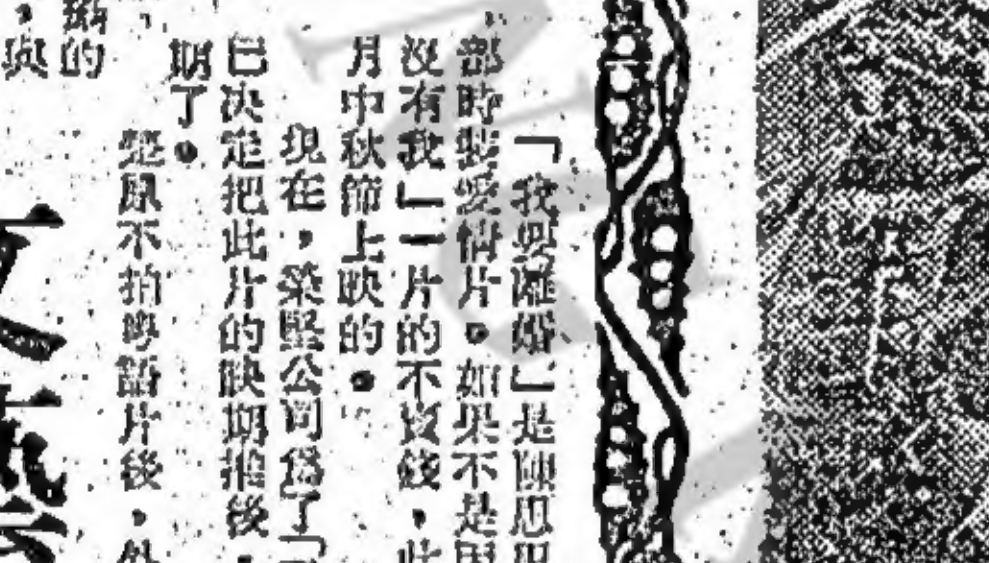 「我要離婚」是陳思思
部時裝愛情片。如果不是因
沒有我」一片的不賣錢,此
月中秋節上映的。
現在,榮堅公司爲了「
已决定把此片的映期推後,
期了。
楚原不拍粤語片後,外
的
與
文